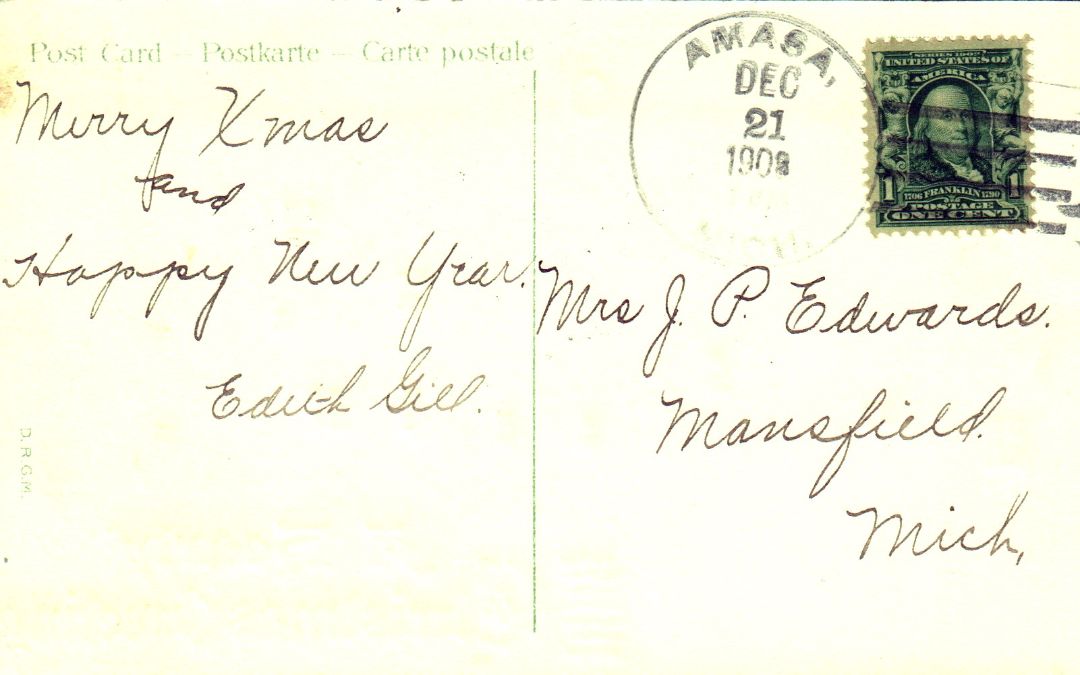 Post Card – Postkarte – Carte postale
Merry Xmas
and
Happy New Year.
Edith Gill.
D.R.G.M.
AMASA,
DEC
21
SERIES 1902
UNITED STATES OF
AMERICA
1 1
1706 FRANKLIN 1790
POSTAGE
ONE CENT
Mrs J. P. Edwards.
Mansfield.
Mich,